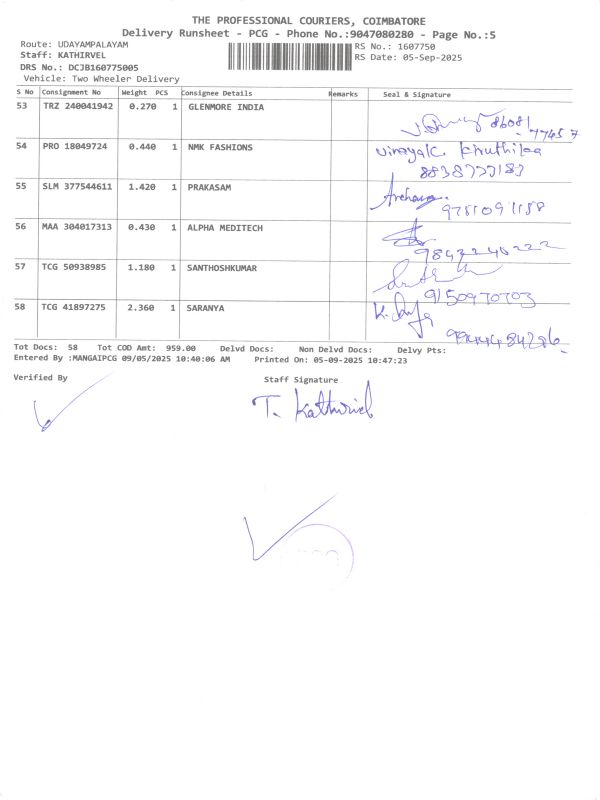 THE PROFESSIONAL COURIERS, COIMBATORE
Delivery Runsheet - PCG - Phone No.:9047080280 - Page No.:5
Route: UDAYAMPALAYAM
RS No.: 1607750
Staff: KATHIRVEL
RS Date: 05-Sep-2025
DRS No.: DCJB160775005
Vehicle: Two Wheeler Delivery
S No Consignment No Weight PCS Consignee Details Remarks Seal & Signature
53 TRZ 240041942 0.270 1 GLENMORE INDIA
86081
77457
54 PRO 18049724 0.440 1 NMK FASHIONS
55 SLM 377544611 1.420 1 PRAKASAM
Archana
56 MAA 304017313 0.430 1 ALPHA MEDITECH
57 TCG 50938985 1.180 1 SANTHOSHKUMAR
9150970703
58 TCG 41897275 2.360 1 SARANYA
Tot Docs: 58 Tot COD Amt: 959.00 Delvd Docs: Non Delvd Docs: Delvy Pts:
Entered By :MANGAIPCG 09/05/2025 10:40:06 AM Printed On: 05-09-2025 10:47:23
Verified By
Staff Signature
T. Kathirvel